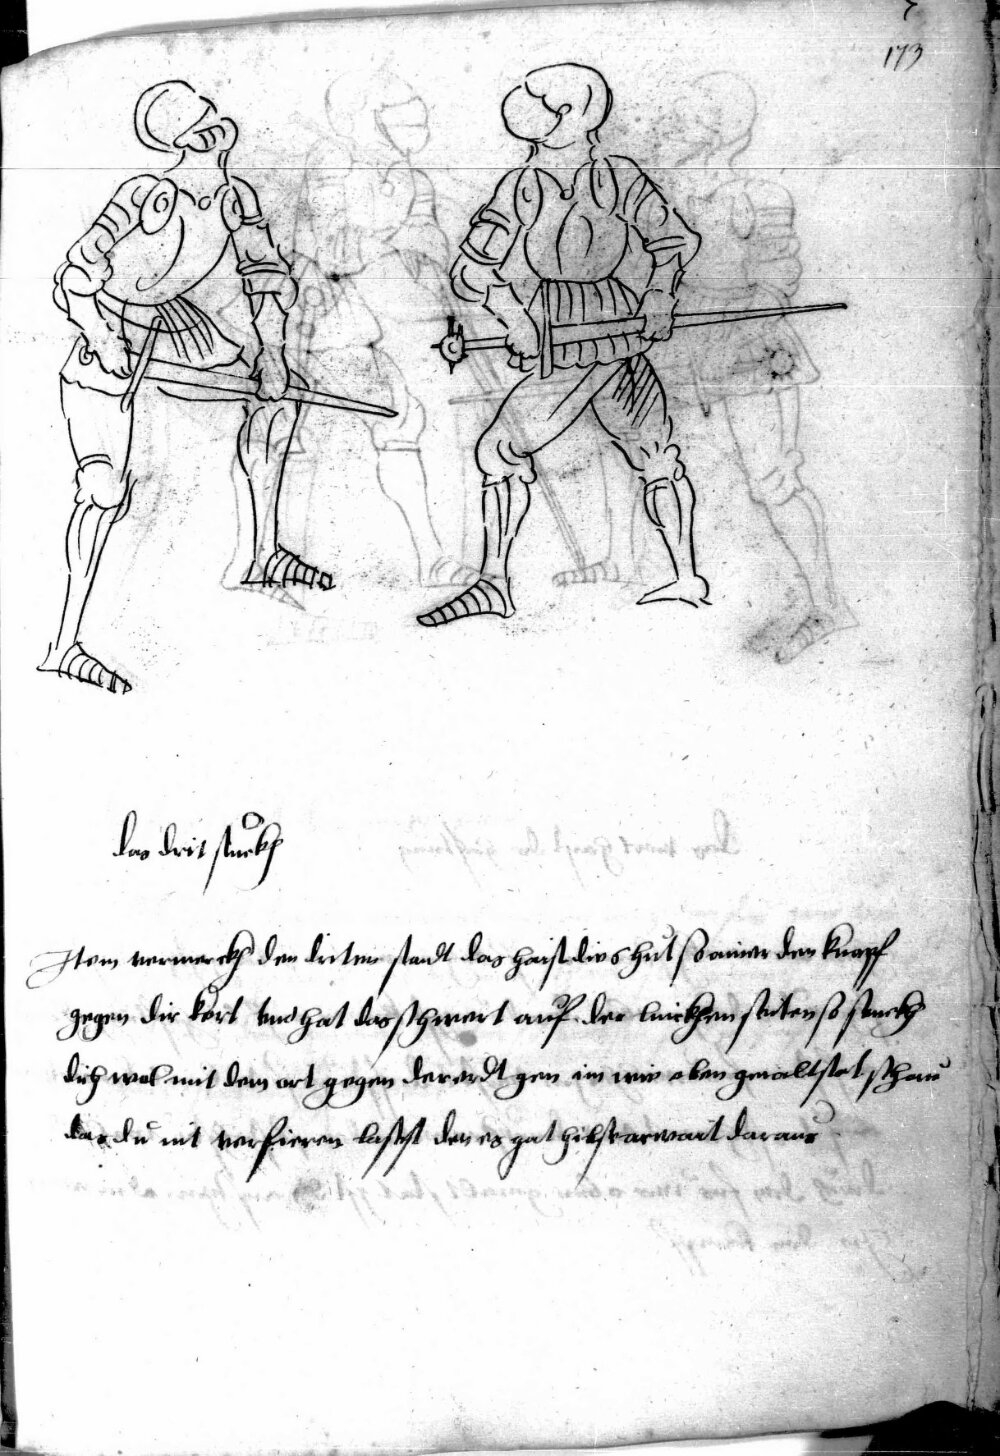 173
das drit stuckh
Item vermerckh den driten standt das haist dies hut so ainer den knopf
gegen dir kert vnd hat das schwert auf der linckhen seiten so streckh
dich wol mit dem ort gegen der erdt gen im wie oben gemalt stet schau
das du nit verfieren lasest den es gat hübsch arwait daraus